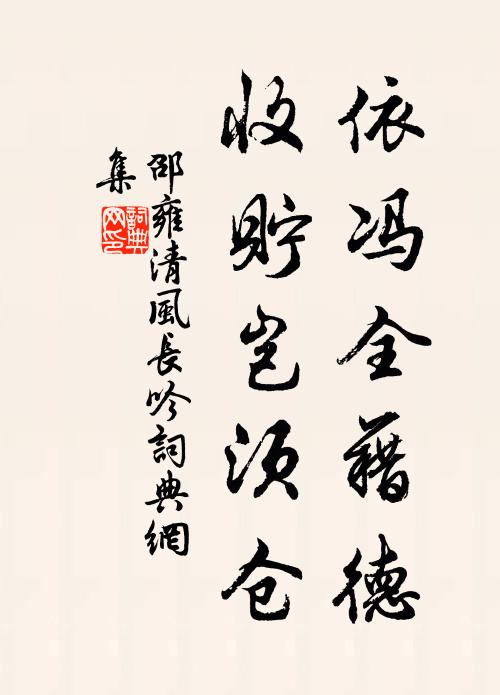 依冯全藉德
收贮岂须仓
邵雍清風長吟詞典網
集
詞典网印